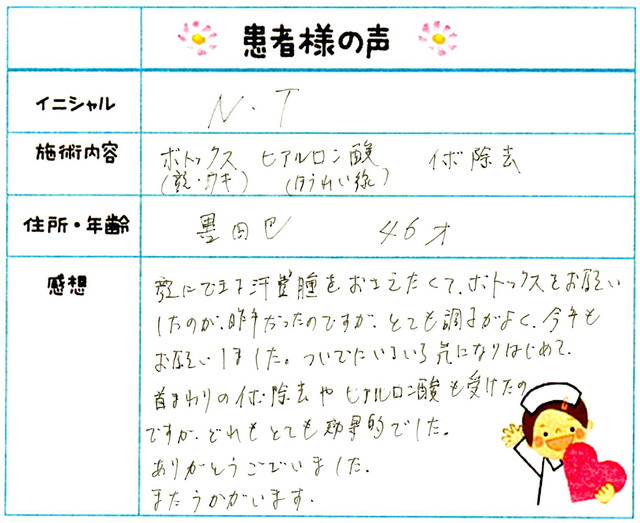 患者様の声
イニシャル
N.T
施術内容
ボトックス ヒアルロン酸 イボ除去
(額・ワキ) (ほうれい線)
住所・年齢
墨田区 46才
感想
額にできる汗管腫をおさえたくて、ボトックスをお願い
したのが、昨年だったのですが、とても調子がよく、今年も
お願いしました。ついでにいろいろ気になりはじめて、
首まわりのイボ除去やヒアルロン酸も受けたの
ですが、どれもとても効果的でした。
ありがとうございました。
またうかがいます。